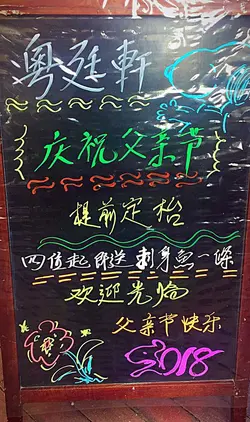 粤廷軒
庆祝父亲节
提前定枱
四位起即送 刺身魚一條
欢迎光临
父亲节快乐
2018